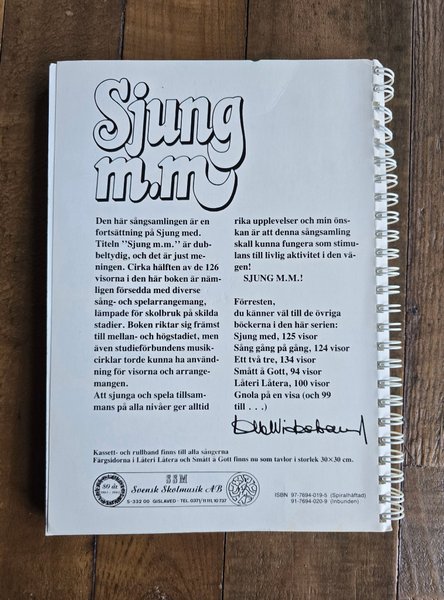 Sjung
m.m
Den här sångsamlingen är en
fortsättning på Sjung med.
Titeln "Sjung m.m." är dub-
beltydig, och det är just me-
ningen. Cirka hälften av de 126
visorna i den här boken är näm-
ligen försedda med diverse
sång- och spelarrangemang,
lämpade för skolbruk på skilda
stadier. Boken riktar sig främst
till mellan- och högstadiet, men
även studieförbundens musik-
cirklar torde kunna ha använd-
ning för visorna och arrange-
mangen.
Att sjunga och spela tillsam-
mans på alla nivåer ger alltid
rika upplevelser och min öns-
kan är att denna sångsamling
skall kunna fungera som stimu-
lans till livlig aktivitet i den vä-
gen!
SJUNG M.M.!
Förresten,
du känner väl till de övriga
böckerna i den här serien:
Sjung med, 125 visor
Sång gång på gång, 124 visor
Ett två tre, 134 visor
Smått å Gott, 94 visor
Låteri Låtera, 100 visor
Gnola på en visa (och 99
till . . .)
Kassett- och rullband finns till alla sångerna
Färgsidorna i Låteri Låtera och Smått å Gott finns nu som tavlor i storlek 30×30 cm.
80 år
SSM
Svensk Skolmusik AB
S-332 00 GISLAVED · TEL 0371/11 111, 10 737
ISBN 97-7694-019-5 (Spiralhäftad)
91-7694-020-9 (Inbunden)